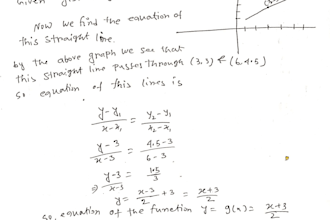 Given
Now we find the equation of
this straight line.
by the above graph we see that
this straight line passes through (3, 3) & (6, 4.5)
so equation of this lines is
y-y₁ / x-x₁ = y₂-y₁ / x₂-x₁
y-3 / x-3 = 4.5-3 / 6-3
⇒ y-3 / x-3 = 1.5 / 3
y = x-3 / 2 + 3 = x+3 / 2
so, equation of the function y = g(x) = x+3 / 2